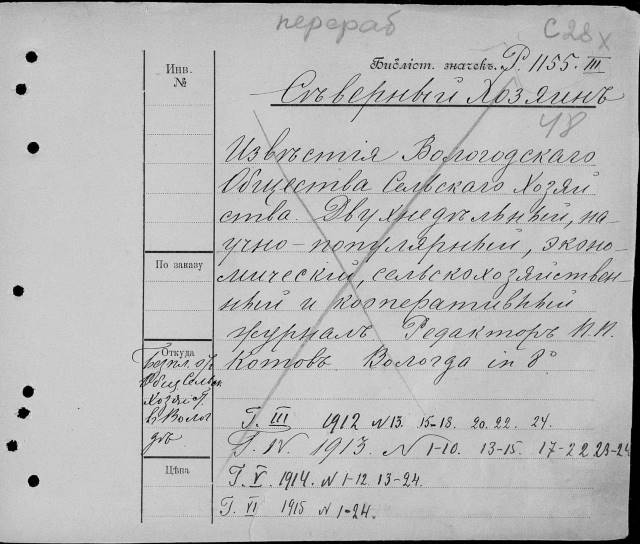 перераб
С 28 х
Библіот. значекъ. Р. 1155. III
Инв.
№
Сѣверный Хозяинъ
48
Извѣстія Вологодскаго
Общества Сельскаго Хозяй
ства. Двухнедѣльный, на-
учно-популярный, эконо-
мическій, сельскохозяйствен-
ный и кооперативный
журналъ. Редакторъ П.П.
Котовъ. Вологда in 8º
По заказу
Откуда
Безпл. отъ
Общ. Сельск
Хозяйст.
в Волог
дѣ.
Цѣна
Г. III 1912 N 13. 15-18. 20. 22. 24.
Г. IV. 1913. N 1-10. 13-15. 17-22 23-24
Г. V. 1914. N 1-12. 13-24.
Г. VI 1915 N 1-24.